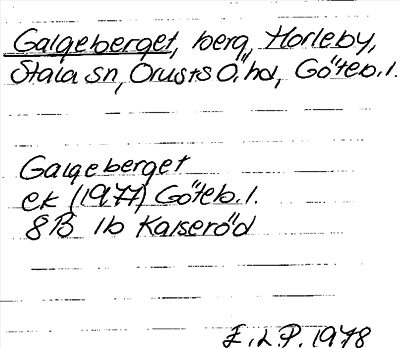 Galgeberget, berg, Horleby,
Stala sn, Orusts Ö. hd, Göteb. l.
Galgeberget
ek (1977) Göteb. l.
8B 1b Kalseröd
E.L.P. 1978